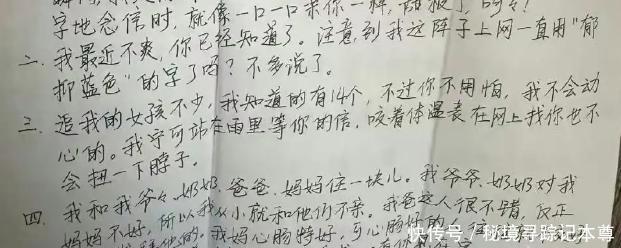 字地念信时,就像一口一口亲你一样,甜极了,呵呵!
二、我最近不爽,你已经知道了。注意到我这阵子上网一直用"郁
抑蓝色"的字了吗?不多说了。
三、追我的女孩不少,我知道的有14个,不过你不用怕,我不会动
心的。我宁可站在雨里等你的信,咬着体温表在网上找你也不
会扭一下脖子。
四、我和我爷々、奶奶、爸爸、妈妈住一块儿。我爷爷、奶奶对我
妈妈不好,所以我从小就和他们不亲。我爸这人很不错,反正
他的。我妈心肠特好,可心肠好的人
快传号/秘境寻踪记本尊